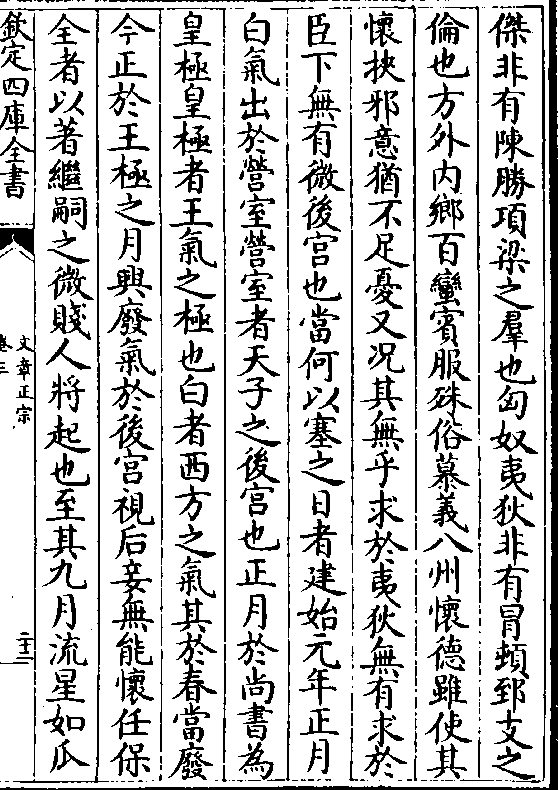 傑非有陳勝項梁之羣也匈奴夷狄非有冒頓郅支之
倫也方外内鄉百蠻賓服殊俗慕義八州懷德雖使其
懷挾邪意猶不足憂又况其無乎求於夷狄無有求於
臣下無有微後宫也當何以塞之日者建始元年正月
白氣出於營室營室者天子之後宫也正月於尚書為
皇極皇極者王氣之極也白者西方之氣其於春當廢
今正於王極之月興廢氣於後宫視后妾無能懷任保
全者以著繼嗣之微賤人將起也至其九月流星如瓜
欽定四庫全書
文章正宗
卷三
二十三